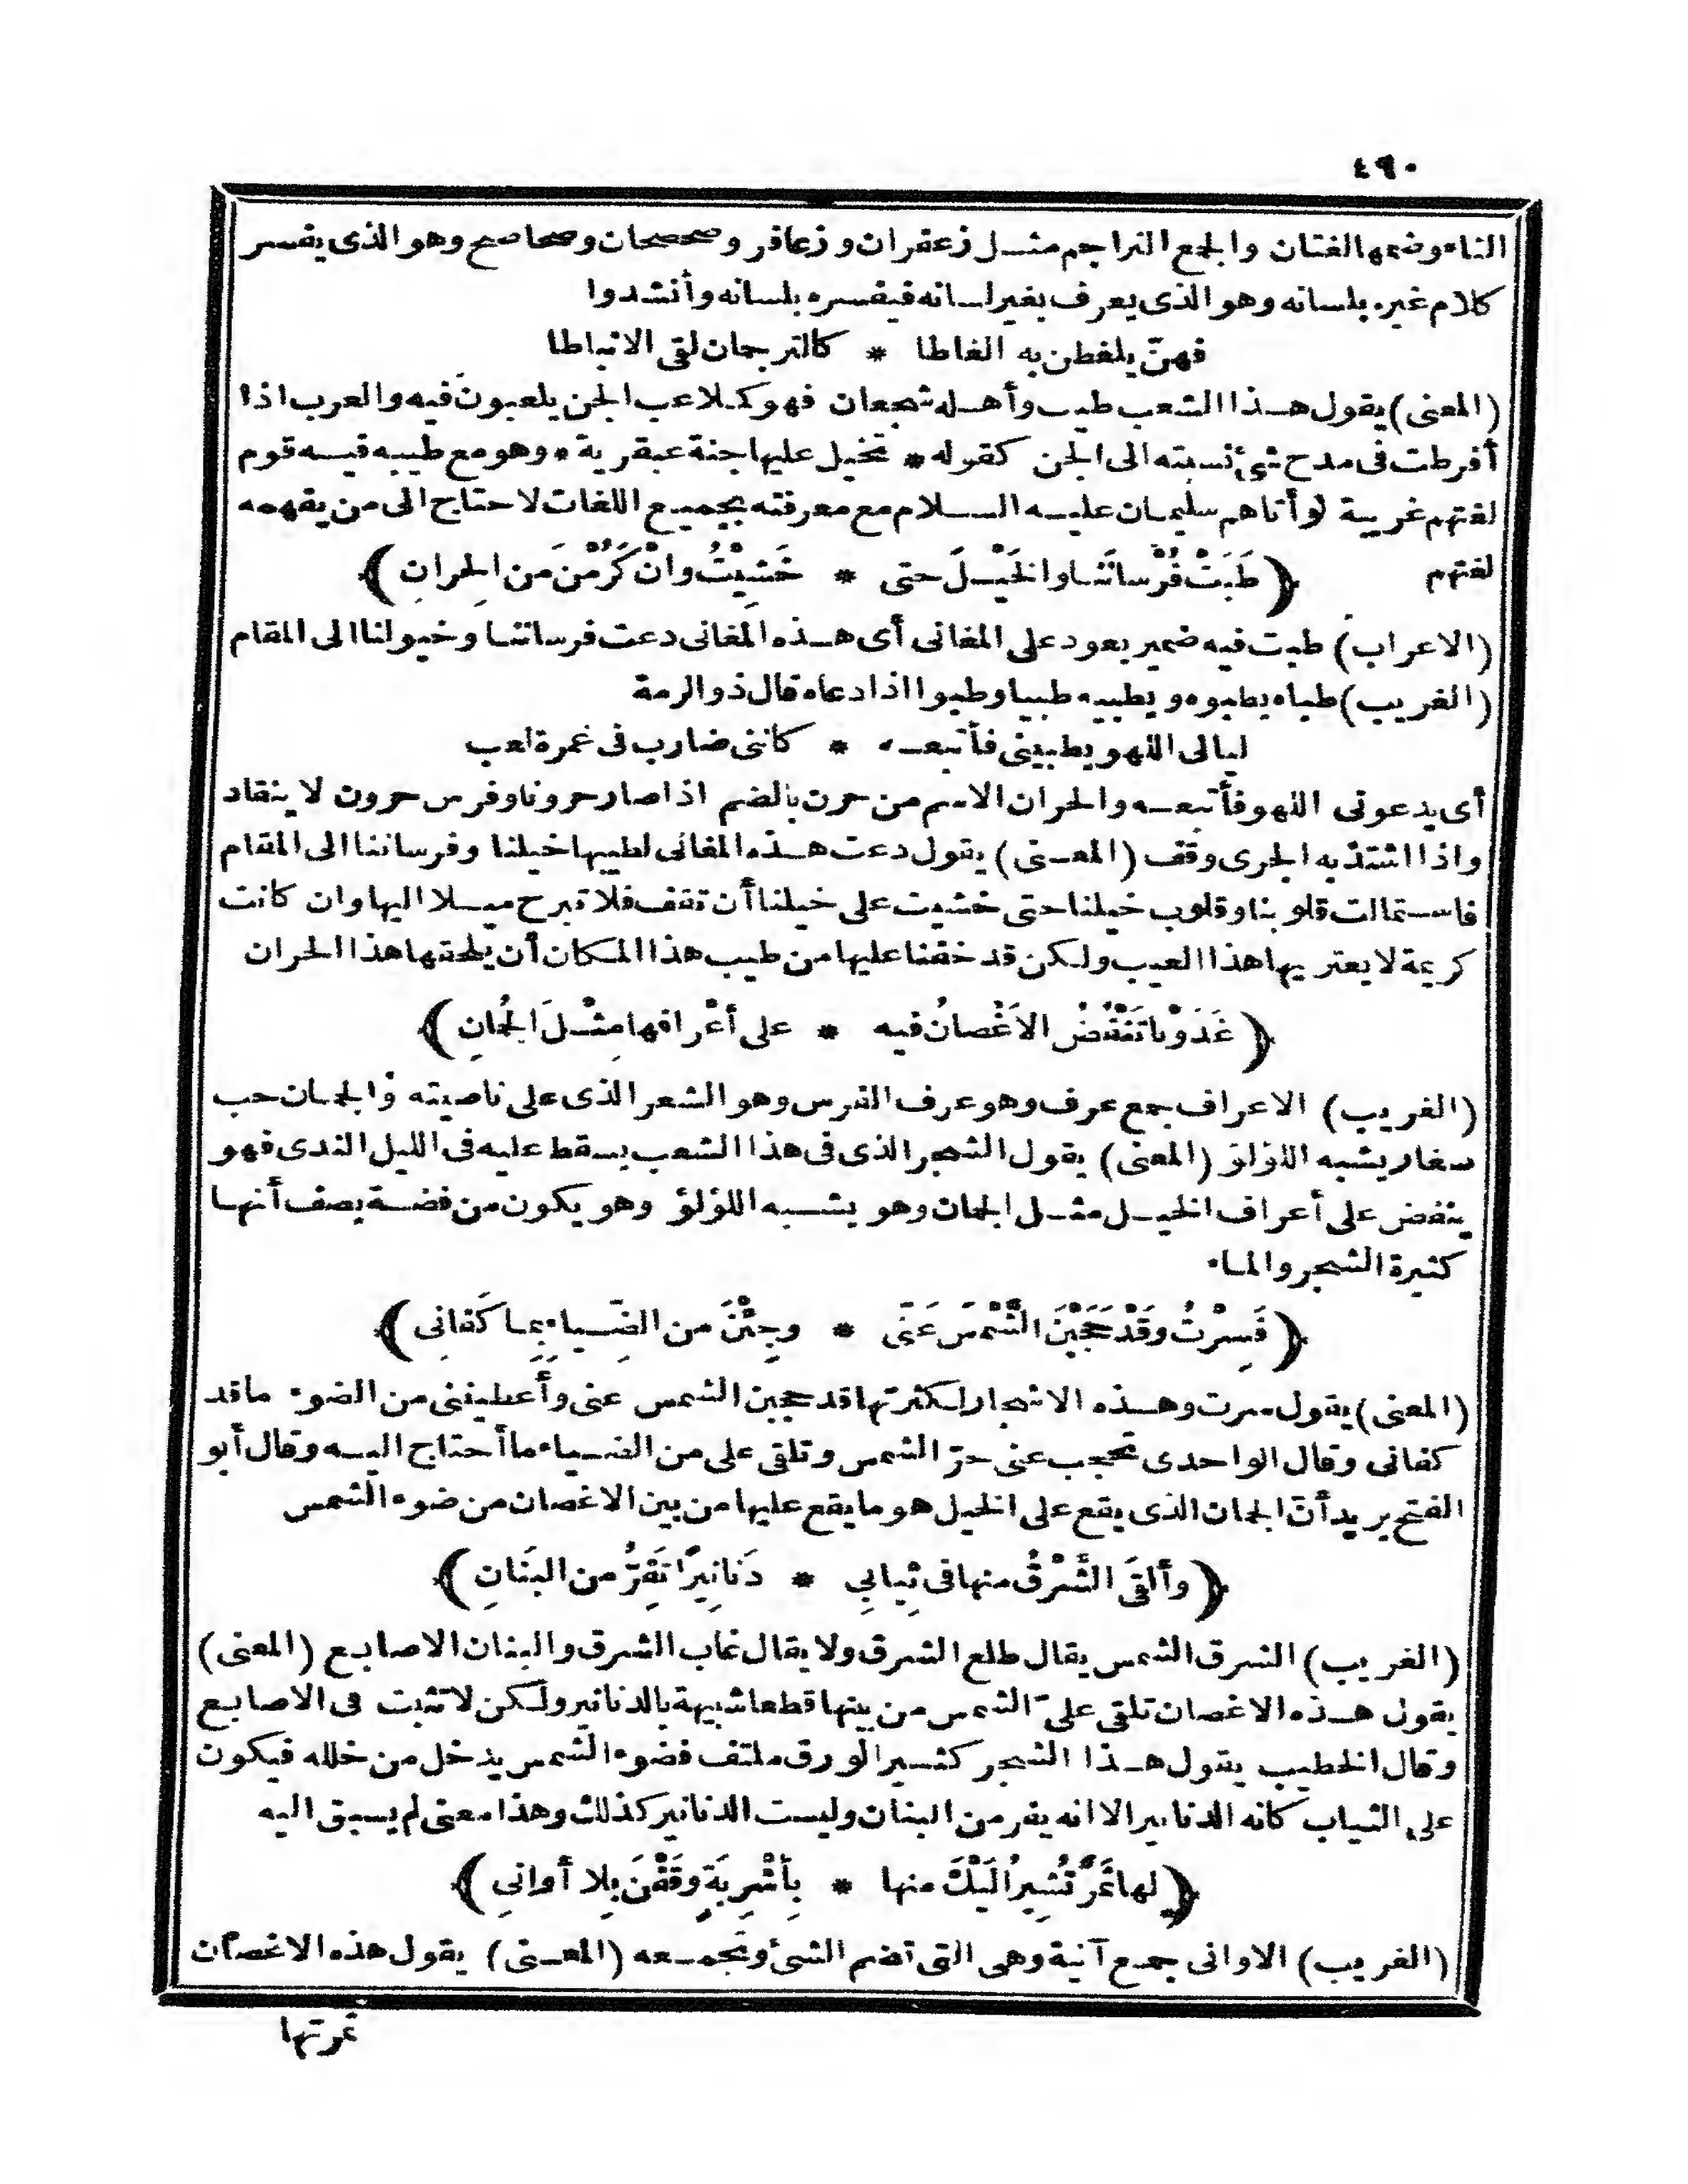 ٤٩٠
التاء وضمها لغتان والجمع التراجم مثل زعفران وزعافر وصحصحان وصحاصح وهو الذى يفسر
كلام غيره بلسانه وهو الذى يعرف بغير لسانه فيفسره بلسانه وأنشدوا
فهنّ يلغطن به الغاطا * كالترجمان لقى الانباطا
(المعنى) يقول هذا الشعب طيب وأهله شجعان فهو كملاعب الجن يلعبون فيه والعرب اذا
أفرطت فى مدح شئ نسبته الى الجن كقوله * تخيل عليها جنة عبقرية * وهو مع طيبه فيه قوم
لغتهم غريبة لو أتاهم سليمان عليه السلام مع معرفته بجميع اللغات لاحتاج الى من يفهمه
لغتهم ﴿طَبَتْ فُرْسانَنا والخَيْلَ حتى * خَشِيْتُ وانْ كَرُمْنَ مَن الحِرانِ﴾
(الاعراب) طبت فيه ضمير يعود على المغانى أى هذه المغانى دعت فرساننا وخيولنا الى المقام
(الغريب) طباه يطبوه ويطبيه طبيا وطبوا اذا دعاه قال ذو الرمة
ليالى اللهو يطبينى فأتبعه * كاننى ضارب فى غمرة لعب
أى يدعونى اللهو فأتبعه والحران الاسم من حرن بالضم اذا صار حرونا وفرس حرون لا ينقاد
واذا اشتدّ به الجرى وقف (المعنى) يقول دعت هذه المغانى لطيبها خيلنا وفرساننا الى المقام
فاستمالت قلوبنا وقلوب خيلنا حتى خشيت على خيلنا أن تقف فلا تبرح ميلا اليها وان كانت
كريمة لا يعتريها هذا العيب ولكن قد خفنا عليها من طيب هذا المكان أن يلحقها هذا الحران
﴿غَدَوْنا تَنْفُضُ الاَغْصانُ فيه * على أعْرافها مِثْلَ الجُمانِ﴾
(الغريب) الاعراف جمع عرف وهو عرف الفرس وهو الشعر الذى على ناصيته والجمان حب
صغار يشبه اللؤلؤ (المعنى) يقول الشجر الذى فى هذا الشعب يسقط عليه فى الليل الندى فهو
ينفض على أعراف الخيل مثل الجمان وهو يشبه اللؤلؤ وهو يكون من فضة يصف أنها
كثيرة الشجر والماء
﴿فَسِرْتُ وقَدْ حَجَبْنَ الشَّمْسَ عَنّى * وجِئْنَ من الضِّياء بِما كَفانى﴾
(المعنى) يقول سرت وهذه الاشجار لكثرتها قد حجبن الشمس عنى وأعطيننى من الضوء ما قد
كفانى وقال الواحدى تحجب عنى حرّ الشمس وتلقى على من الضياء ما أحتاج اليه وقال أبو
الفتح يريد أنّ الجمان الذى يقع على الخيل هو ما يقع عليها من بين الاغصان من ضوء الشمس
﴿وألقَى الشَّرْقُ منها فى ثِيابى * دَنانِيرًا تَفِرُّ من البَنانِ﴾
(الغريب) الشرق الشمس يقال طلع الشرق ولا يقال غاب الشرق والبنان الاصابع (المعنى)
يقول هذه الاغصان تلقى علىّ الشمس من بينها قطعا شبيهة بالدنانير ولكن لا تثبت فى الاصابع
وقال الخطيب يقول هذا الشجر كثير الورق ملتف فضوء الشمس يدخل من خلله فيكون
على الثياب كانه الدنانير الا انه يفر من البنان وليست الدنانير كذلك وهذا معنى لم يسبق اليه
﴿لها ثَمَرٌ تُشِيرُ اليْكَ منها * بِأشْرِبَةٍ وقَفْنَ بِلا أوانى﴾
(الغريب) الاوانى جمع آنية وهى التى تضم الشئ وتجمعه (المعنى) يقول هذه الاغصان
ثمرتها